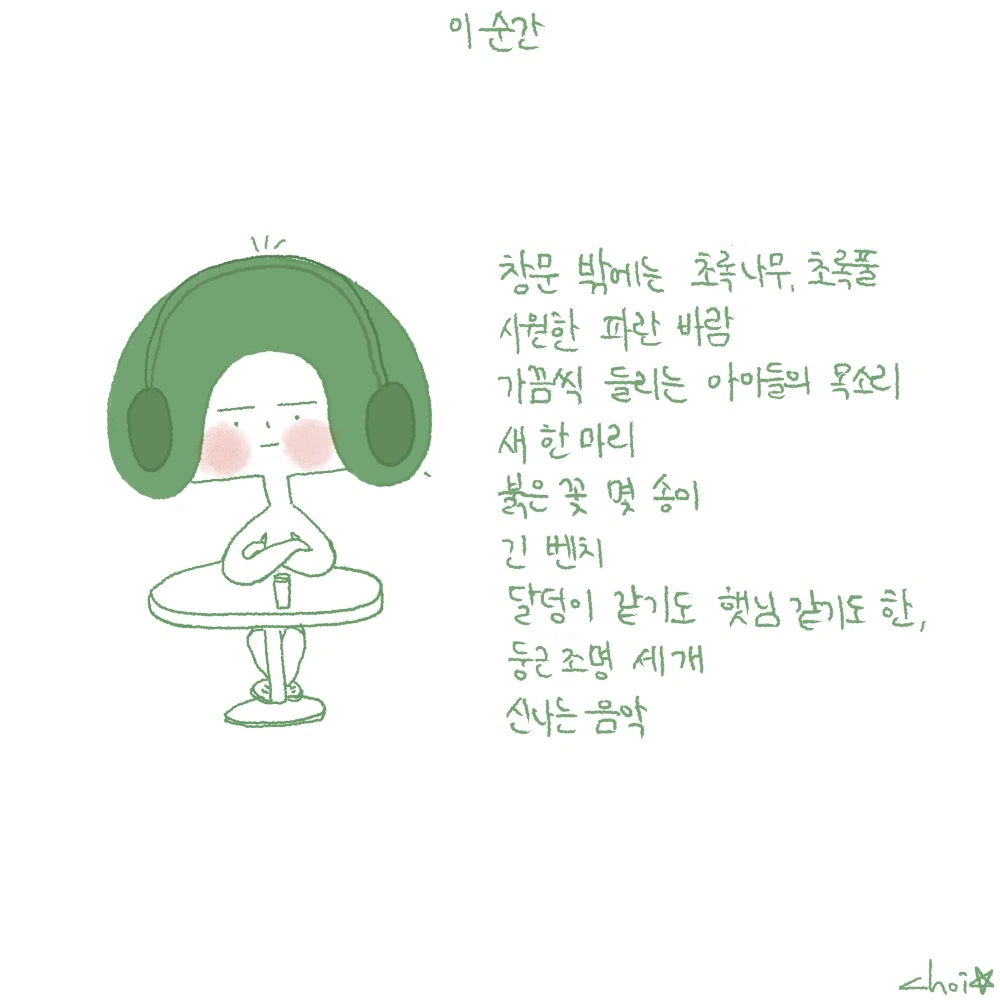 이 순간
창문 밖에는 초록나무, 초록풀
시원한 파란 바람
가끔씩 들리는 아이들의 목소리
새 한 마리
붉은 꽃 몇 송이
긴 벤치
달덩이 같기도 햇님 같기도 한,
둥근 조명 세 개
신나는 음악
choi☆